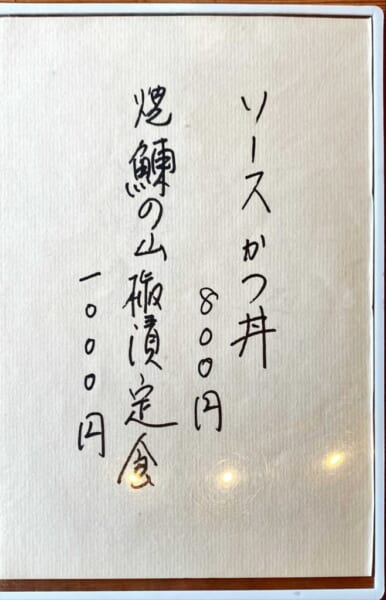 ソースかつ丼
800円
焼鰊の山椒漬定食
一000円